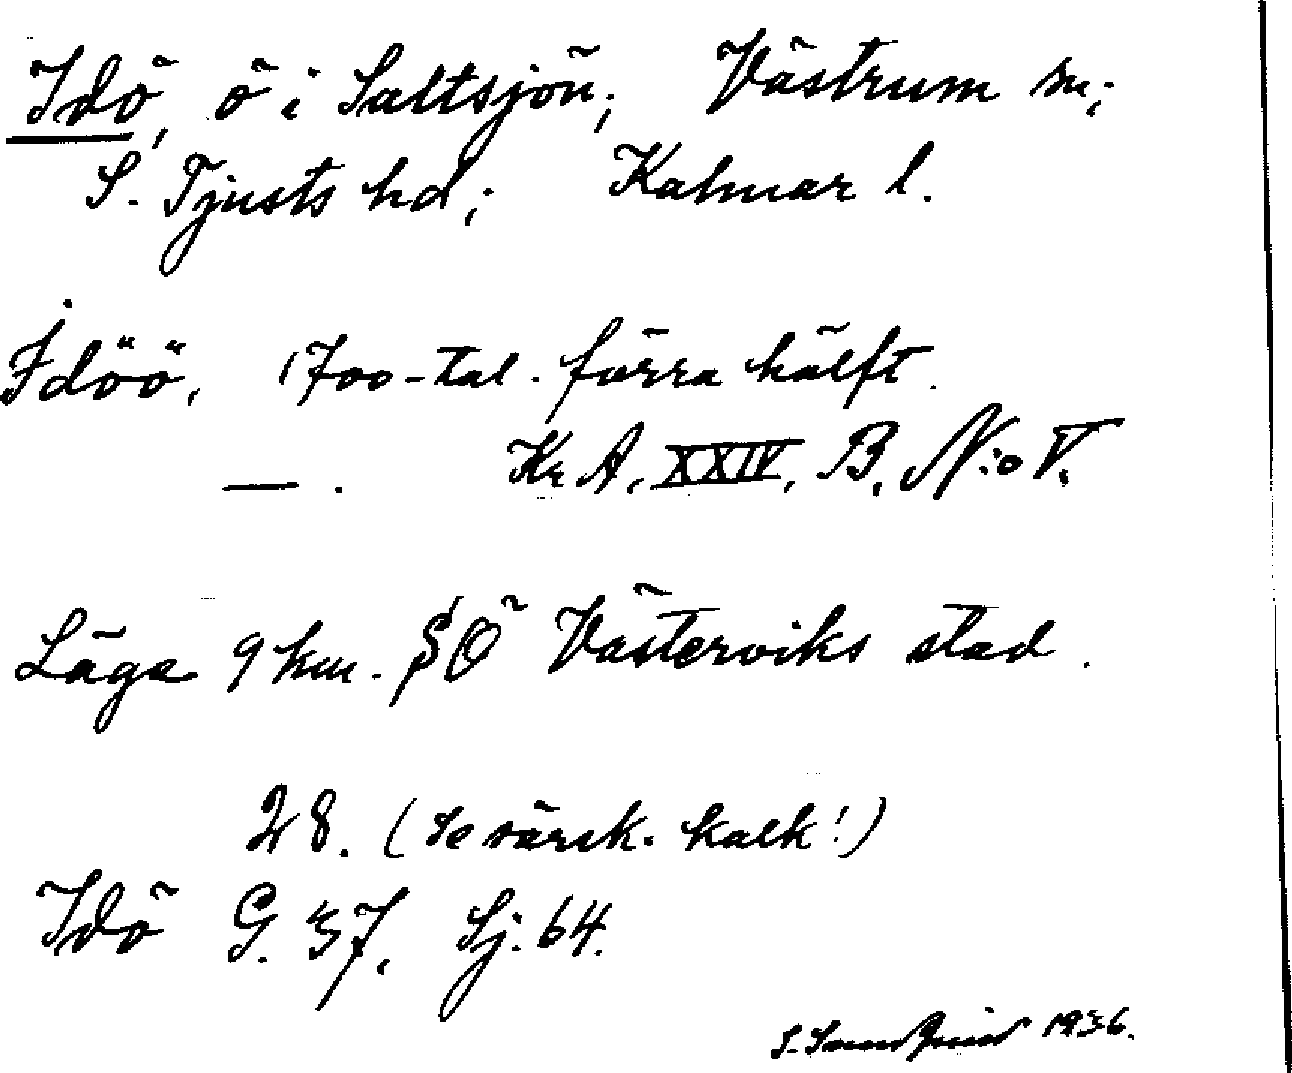 Idö, ö i Saltsjön; Västrum sn;
S. Tjusts hd; Kalmar l.
Idöö, 1700-tal. förra hälft.
— . Kr A, XXIV, B, N:o V.
Läge 9 km. SÖ Västerviks stad.
28. (se särsk. kalk!)
Idö G. 37, Sj. 64.
S. 1936.